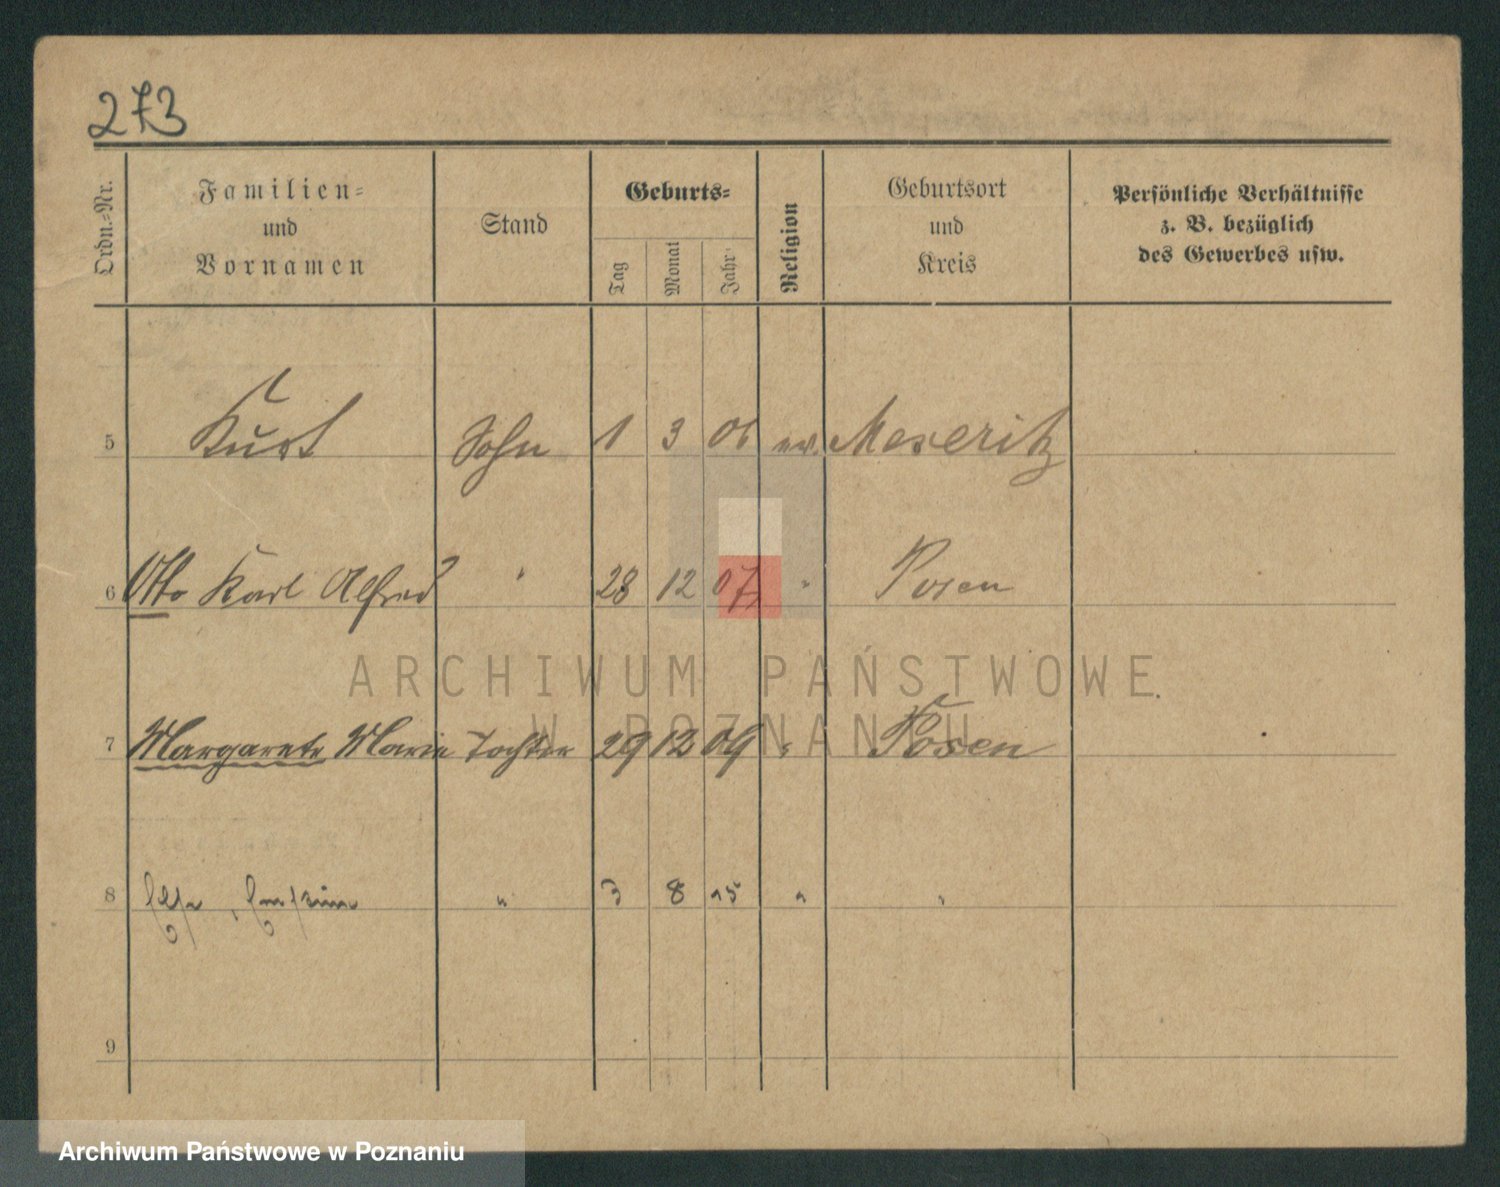 273
Ordn.-Nr.
Familien-
und
Vornamen
Stand
Geburts-
Tag
Monat
Jahr
Religion
Geburtsort
und
Kreis
Persönliche Verhältnisse
z. B. bezüglich
des Gewerbes usw.
5 Kurt Sohn 1 3 06 ev. Meseritz
6 Otto Karl Alfred " 28 12 07 " Posen
ARCHIWUM PAŃSTWOWE
W POZNANIU
7 Margarete Marie Tochter 29 12 09 " Posen
8 Else, " 3 8 15 " "
9
Archiwum Państwowe w Poznaniu